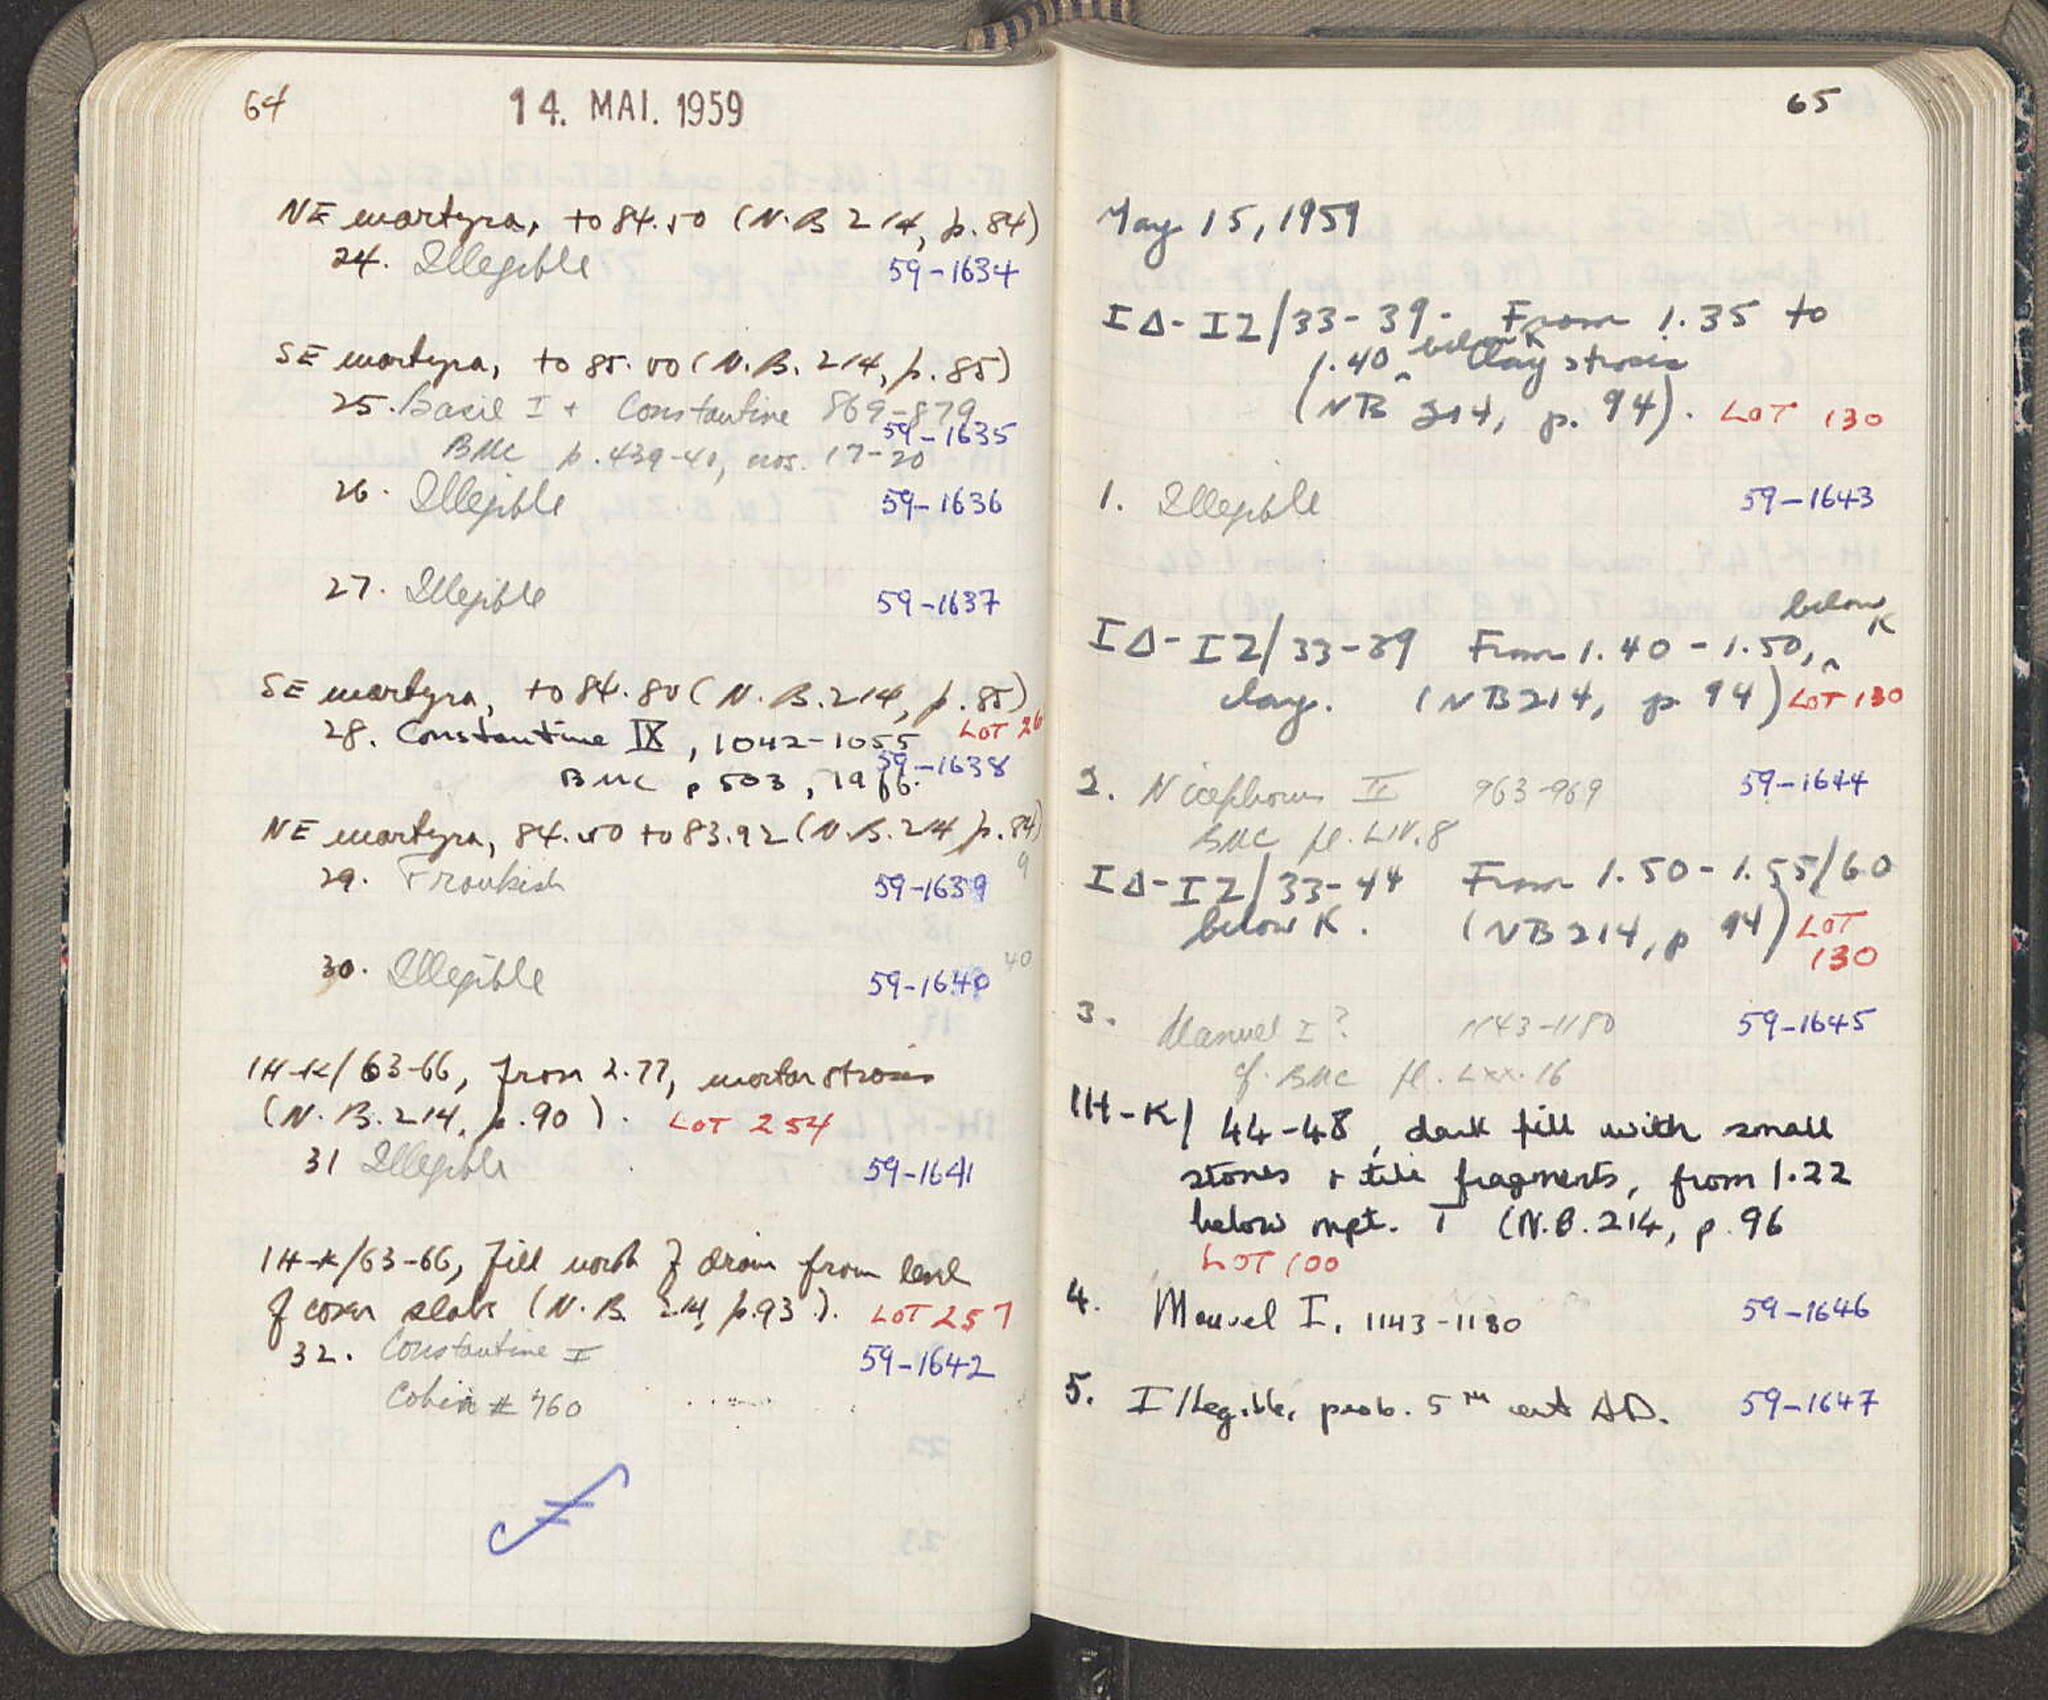 64
14. MAI. 1959
NE martyra, to 84.50 (N.B 214, p. 84)
24. Illegible 59-1634
SE martyra, to 85.00 (N.B. 214, p. 85)
25. Basil I + Constantine 869-879
59-1635
BMC p. 439-40, nos. 17-20
26. Illegible 59-1636
27. Illegible 59-1637
SE martyra, to 84.80 (N.B. 214, p. 85)
LOT 26
28. Constantine IX, 1042-1055
59-1638
BMC p 503, 19 ff.
NE martyra, 84.50 to 83.92 (N.B. 214 p. 84)
29. Frankish 59-1639 9
30. Illegible 59-1640 40
IH-K/63-66, from 2.77, mortar strosis
(N.B. 214, p. 90). LOT 254
31 Illegible 59-1641
IH-K/63-66, fill north of drain from level
of cover slabs (N.B. 214, p. 93). LOT 257
32. Constantine I 59-1642
Cohen # 760
65
May 15, 1959
ΙΔ-ΙΖ/33-39. From 1.35 to
1.40 below K clay strosis
(NB 214, p. 94). LOT 130
1. Illegible 59-1643
below K
ΙΔ-ΙΖ/33-39 From 1.40-1.50,
clay. (NB 214, p 94) LOT 130
2. Nicephorus II 963-969 59-1644
BMC pl. LIV.8
ΙΔ-ΙΖ/33-44 From 1.50-1.55/60
below K. (NB 214, p 94) LOT
130
3. Manuel I? 1143-1180 59-1645
cf. BMC pl. Lxx.16
IH-K/44-48, dark fill with small
stones + tile fragments, from 1.22
below mpt. T (N.B. 214, p. 96
LOT 100
4. Manuel I, 1143-1180 59-1646
5. Illegible, prob. 5TH cent AD. 59-1647